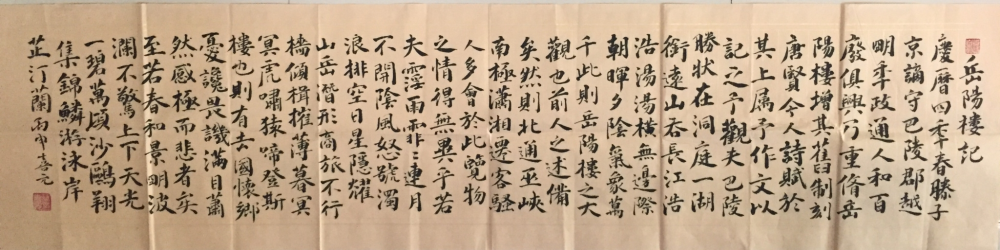 岳陽樓記
慶曆四年春滕子
京謫守巴陵郡越
眀年政通人和百
廢俱興乃重脩岳
陽樓增其舊制刻
唐賢今人詩賦於
其上属予作文以
記之予觀夫巴陵
勝狀在洞庭一湖
銜遠山吞長江浩
浩湯湯橫無邊際
朝暉夕陰氣象萬
千此則岳陽樓之大
觀也前人之述備
矣然則北通巫峽
南極瀟湘遷客騷
人多會於此覽物
之情得無異乎若
夫霪雨霏〻連月
不開陰風怒號濁
浪排空日星隱耀
山岳潛形商旅不行
檣傾楫摧薄暮冥
冥虎嘯猿啼登斯
樓也則有去國懷鄉
憂讒畏譏滿目蕭
然感極而悲者矣
至若春和景明波
瀾不驚上下天光
一碧萬頃沙鷗翔
集錦鱗游泳岸
芷汀蘭丙申喜